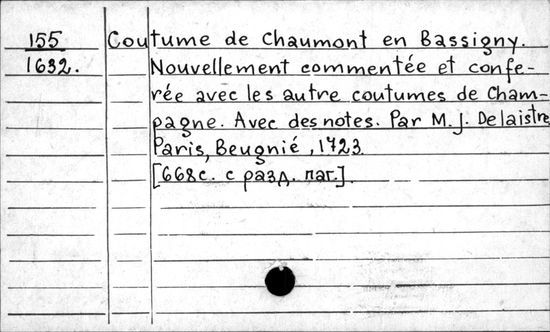 155
1632.
Coutume de Chaumont en Bassigny.
Nouvellement commentée et confe-
rée avec les autre coutumes de Cham-
pagne. Avec des notes. Par M.J. Delaistre
Paris, Beugnié, 1723.
[668с. с разд. паг.]